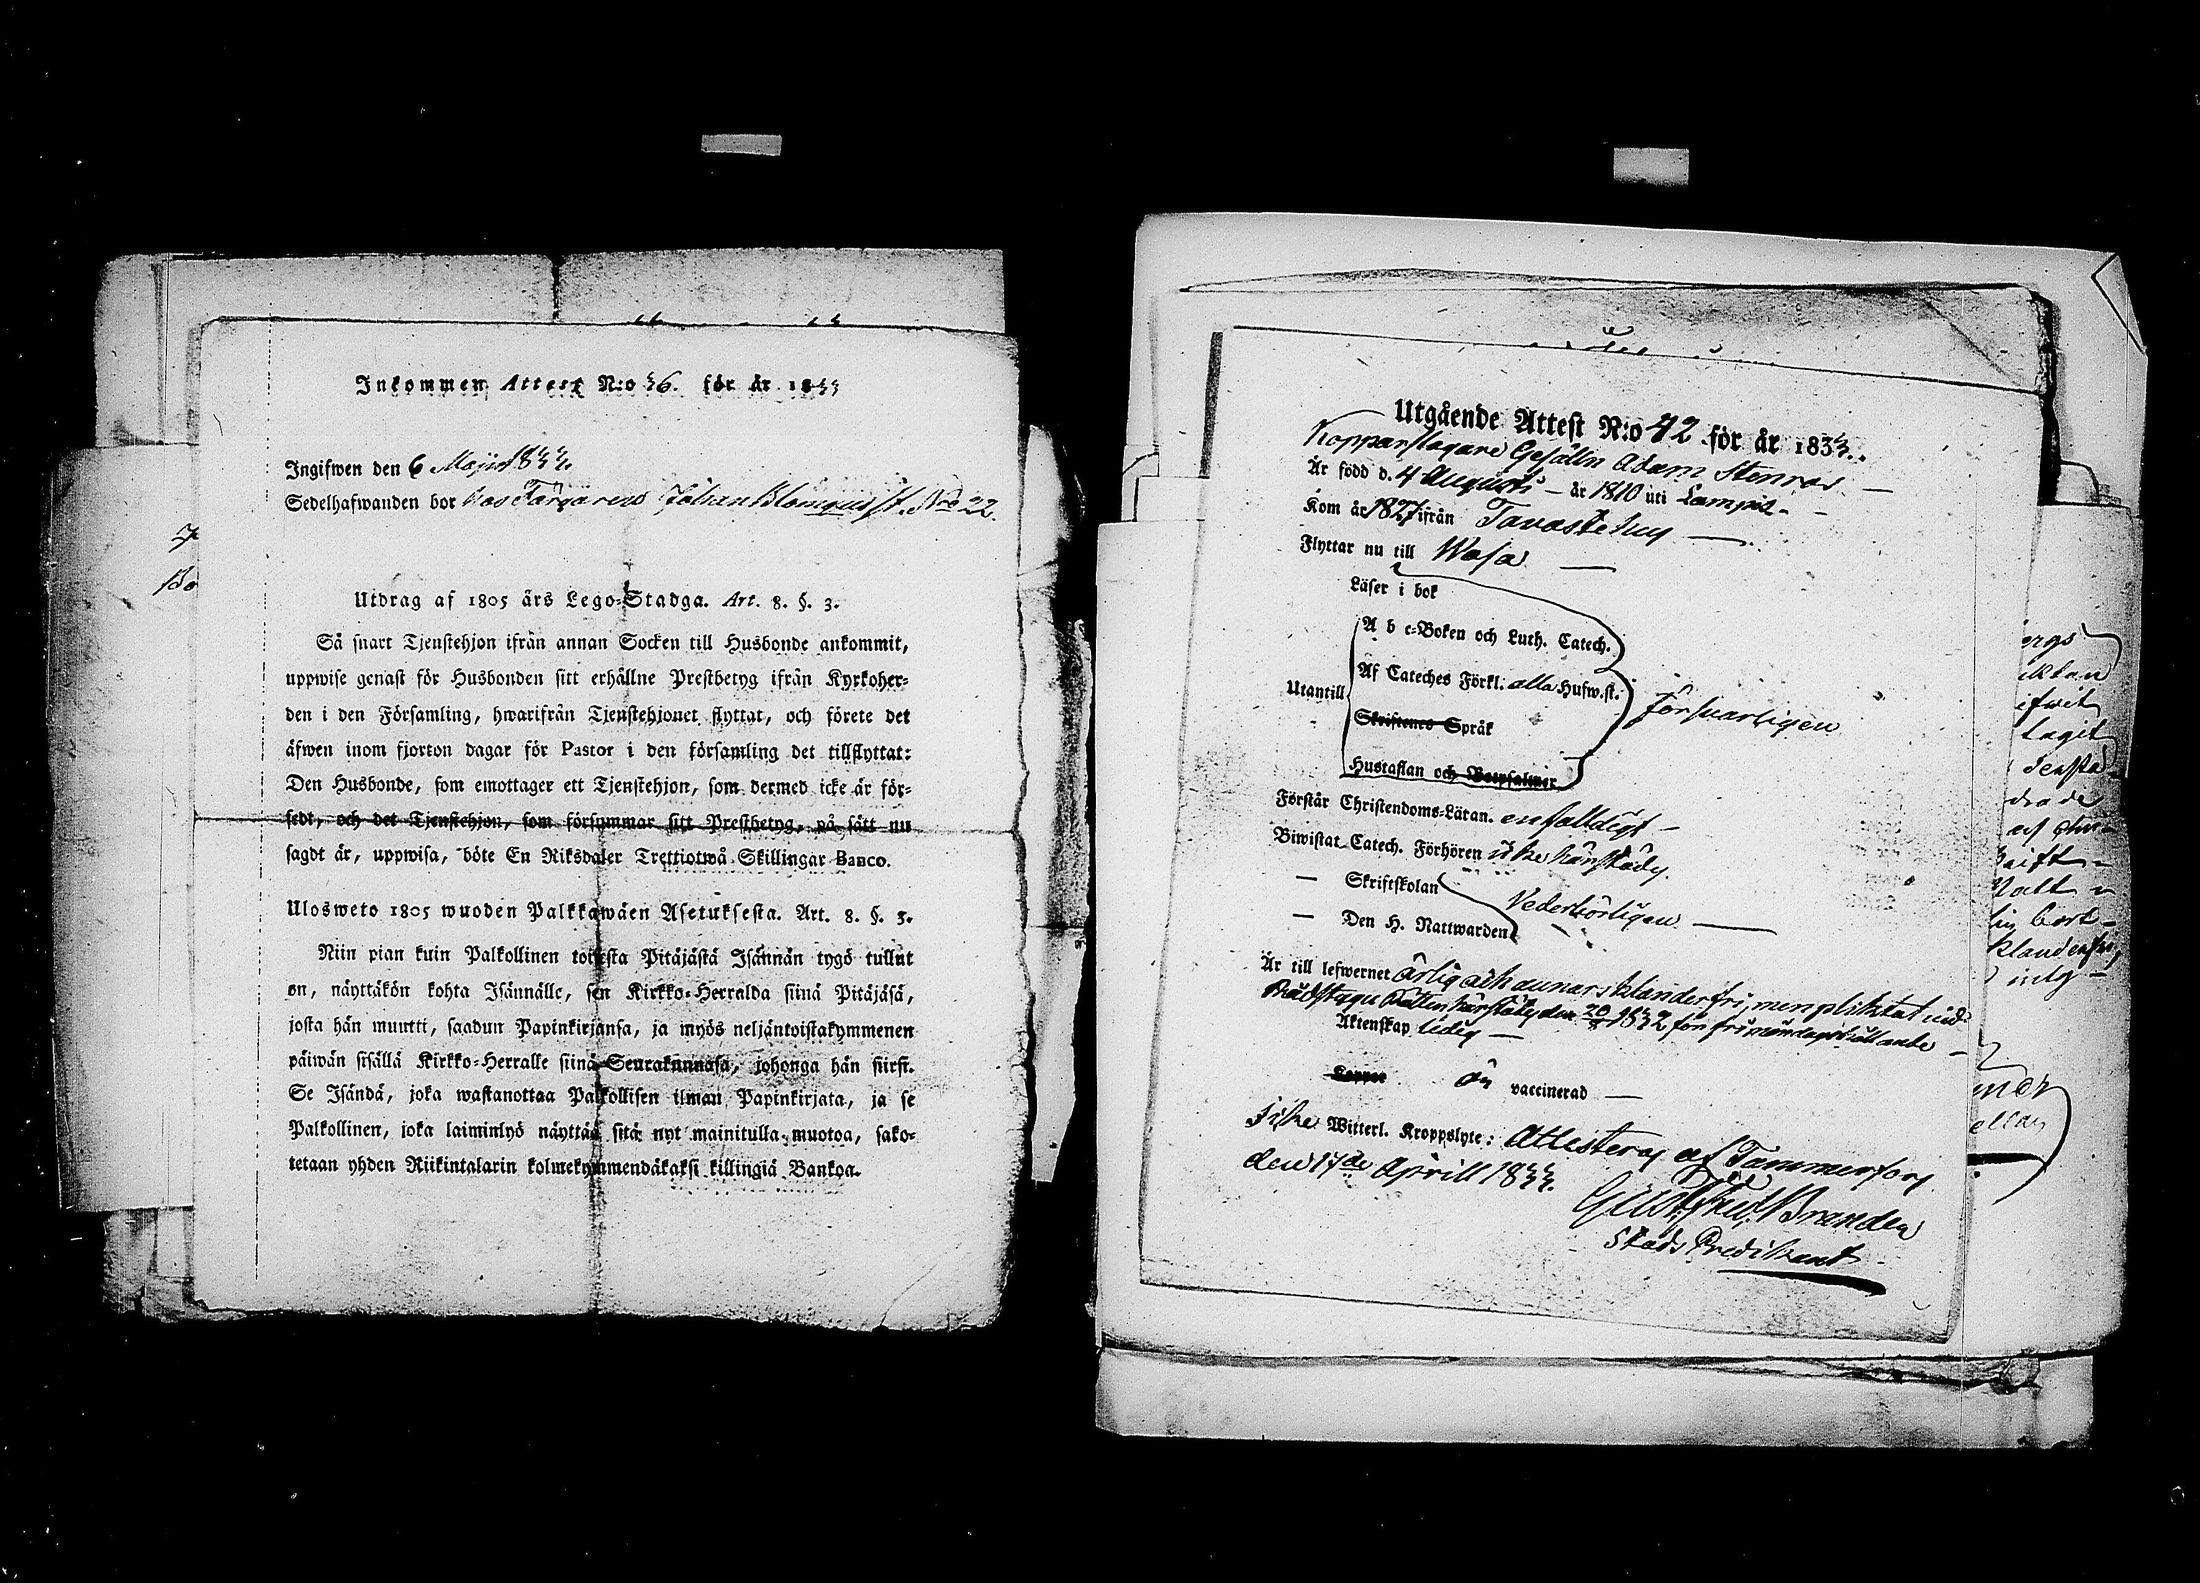 Inkommen Attest N:o 36. för år 1833
Ingifwen den 6 Maji 1833.
Sedelhafwanden bor hos Färgaren Johan Blomquist. Nro 22.
Utdrag af 1805 års Lego-Stadga. Art. 8. §. 3.
Så snart Tjenstehjon ifrån annan Socken till Husbonde ankommit,
uppwise genast för Husbonden sitt erhållne Prestbetyg ifrån Kyrkoher-
den i den Församling, hwarifrån Tjenstehjonet flyttat, och förete det
äfwen inom fjorton dagar för Pastor i den församling det tillflyttat:
Den Husbonde, som emottager ett Tjenstehjon, som dermed icke är för-
sedt, och det Tjenstehjon, som försummar sitt Prestbetyg, på sätt nu
sagdt är, uppwisa, böte En Riksdaler Trettiotwå Skillingar Banco.
Ulosweto 1805 wuoden Palkkawäen Asetuksesta. Art. 8. §. 3.
Niin pian kuin Palkollinen toisesta Pitäjästä Isännän tygö tullut
on, näyttäkön kohta Isännälle, sen Kirkko-Herralda siinä Pitäjäsä,
josta hän muutti, saadun Papinkirjansa, ja myös neljäntoistakymmenen
päiwän sisällä Kirkko-Herralle siinä Seurakunnasa, johonga hän siirsi.
Se Isändä, joka wastanottaa Palkollisen ilman Papinkirjata, ja se
Palkollinen, joka laiminlyö näyttää sitä nyt mainitulla muotoa, sako-
tetaan yhden Riikintalarin kolmekymmendäkaksi killingiä Bankoa.
Utgående Attest N:o 42 för år 1833.
Kopparslagare Gesälln Adam Stenros
Är född d. 4 Augusti år 1810 uti Lampis
Kom år 1827 ifrån Tavastehus
Flyttar nu till Wasa
Läser i bok
A b c-Boken och Luth. Catech.
Af Cateches Förkl. alla Hufw.st.
Utantill
försvarligen
Skriftenes Språk
Hustaflan och Botpsalmer
Förstår Christendoms-Läran. enfaldigt
Biwistat Catech. Förhören icke härstädes.
— Skriftskolan
Vederbörligen
— Den H. Nattwarden
Är till lefwernet ärlig och annars klanderfri, men pliktat wid
Rådstugu Rätten härstädes den 20/8 1832 för frimåndags hållande
Äktenskap ledig
Koppor
är vaccinerad
Icke Witterl. Kroppslyte: Attesteras af Tammerfors
den 17de Aprill 1833.
Gust: Fred: Branden
Stads Predikant